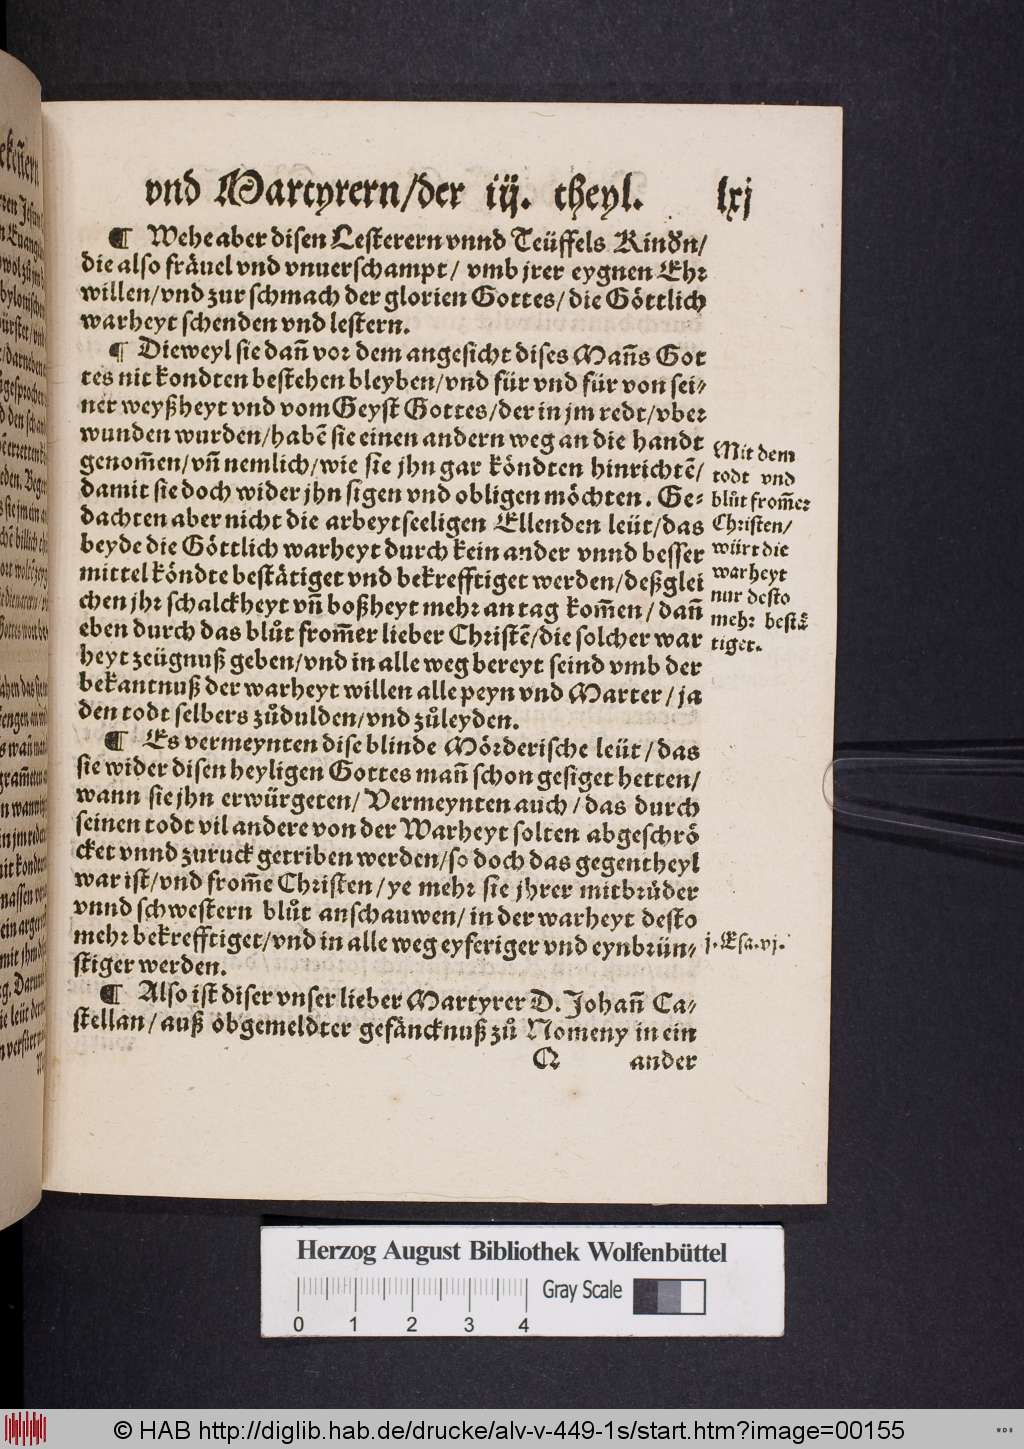 vnd Martyrern/der iij. theyl. lxj
¶ Wehe aber disen Lesterern vnnd Teüffels Kindn/
die also fräuel vnd vnuerschampt/ vmb jrer eygnen Ehr
willen/vnd zur schmach der glorien Gottes/die Göttlich
warheyt schenden vnd lestern.
¶ Dieweyl sie dañ vor dem angesicht dises Mañs Got
tes nit kondten bestehen bleyben/vnd für vnd für von sei-
ner weyßheyt vnd vom Geyst Gottes/der in jm redt/vber
wunden wurden/habẽ sie einen andern weg an die handt
genom̃en/vñ nemlich/wie sie jhn gar köndten hinrichtẽ/
damit sie doch wider jhn sigen vnd obligen möchten. Ge-
dachten aber nicht die arbeytseeligen Ellenden leüt/das
beyde die Göttlich warheyt durch kein ander vnnd besser
mittel köndte bestätiget vnd bekrefftiget werden/deßglei
chen jhr schalckheyt vñ boßheyt mehr an tag kom̃en/ dañ
eben durch das blůt from̃er lieber Christẽ/die solcher war
heyt zeügnuß geben/vnd in alle weg bereyt seind vmb der
bekantnuß der warheyt willen alle peyn vnd Marter/ja
den todt selbers zůdulden/vnd zůleyden.
Mit dem
todt vnd
blůt from̃er
Christen/
würt die
warheyt
nur desto
mehr bestä
tiget.
¶ Es vermeynten dise blinde Mörderische leüt/das
sie wider disen heyligen Gottes mañ schon gesiget hetten/
wann sie jhn erwürgeten/ Vermeynten auch/das durch
seinen todt vil andere von der Warheyt solten abgeschrö
cket vnnd zuruck getriben werden/so doch das gegentheyl
war ist/vnd from̃e Christen/ye mehr sie jhrer mitbrůder
vnnd schwestern blůt anschauwen/in der warheyt desto
mehr bekrefftiget/vnd in alle weg eyferiger vnd eynbrün-
stiger werden.
j. Esa. vj.
¶ Also ist diser vnser lieber Martyrer D. Johañ Ca-
stellan/auß obgemeldter gefäncknuß zů Nomeny in ein
Q ander
Herzog August Bibliothek Wolfenbüttel
Gray Scale
0 1 2 3 4
© HAB http://diglib.hab.de/drucke/alv-v-449-1s/start.htm?image=00155